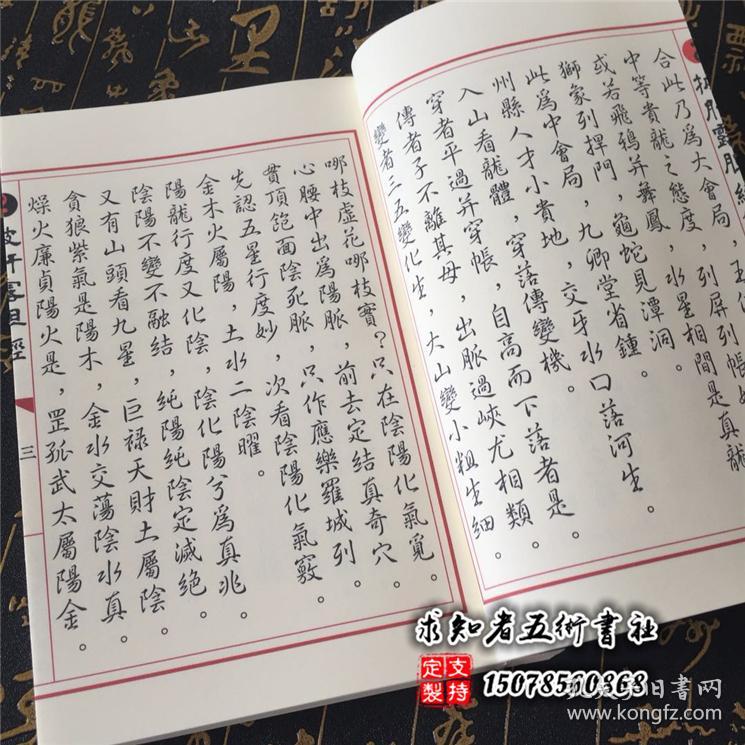 合此乃爲大會局，列屏列帳
中等貴龍之態度，水星相間是真龍
或若飛鵝并舞鳳，龜蛇見潭洞。
獅象列捍門，九卿堂省鍾。
此爲中會局，交牙水口落河生。
州縣人才小貴地，穿落傳變機。
入山看龍體，自高而下落者是。
穿者平過并穿帳，出脈過峽尤相類。
傳者子不離其母，大山變小粗生細。
變者二五變化生，
哪枝虛花哪枝實？只在陰陽化氣覓。
心腰中出爲陽脈，前去定結真奇穴。
貫頂飽面陰死脈，只作應樂羅城列。
先認五星行度妙，次看陰陽化氣竅。
金木火屬陽，土水二陰曜。
陽龍行度又化陰，陰化陽兮爲真兆。
陰陽不變不融結，純陽純陰定滅絕。
又有山頭看九星，巨禄天財土屬陰。
貪狼紫氣是陽木，金水交蕩陰水真。
燥火廉貞陽火是，罡孤武太屬陽金。
三
求知者五術書社
支持定製
15078510868
旧書网
www.kongfz.com